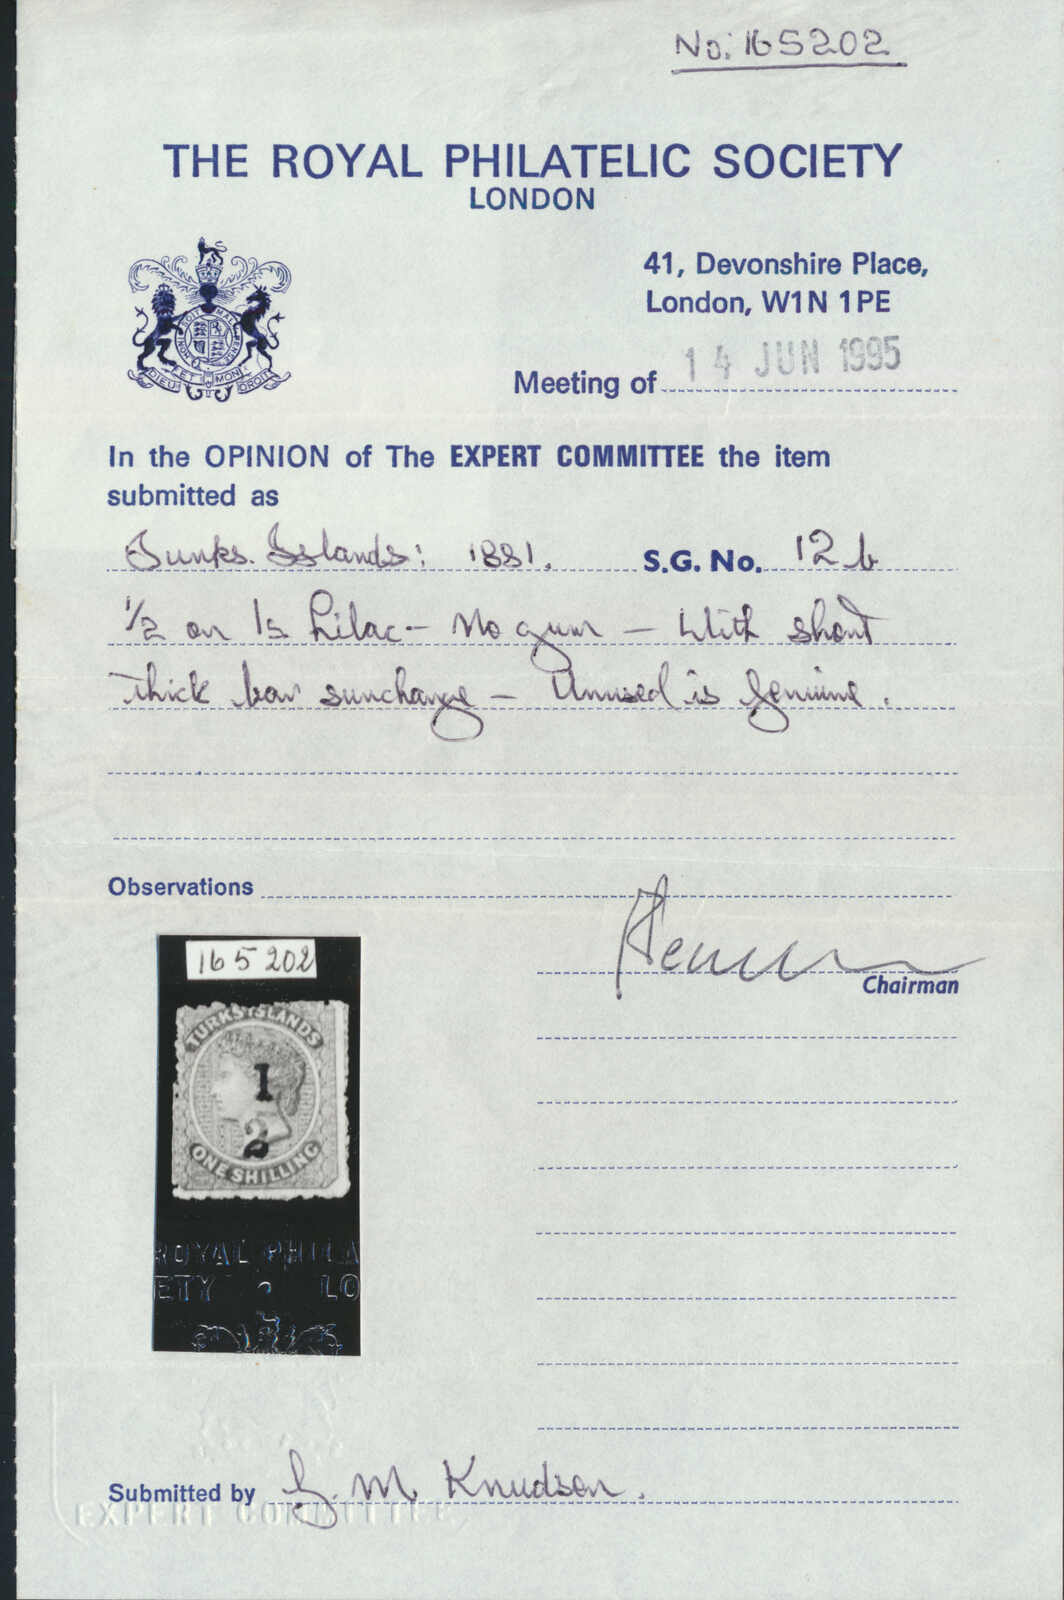 No: 165202
THE ROYAL PHILATELIC SOCIETY
LONDON
41, Devonshire Place,
London, W1N 1PE
SOIT MAL PENSE HONI
DIEU ET MON DROIT
Meeting of 14 JUN 1995
In the OPINION of The EXPERT COMMITTEE the item
submitted as
Turks. Islands: 1881. S.G. No. 12b
1/2 on 1s Lilac - No gum - With short
thick bar surcharge - Unused is genuine.
Observations
Chairman
165202
TURKS ISLANDS
1
2
ONE SHILLING
ROYAL PHILA
ETY LO
Submitted by G. M. Knudsen.
EXPERT COMMITTEE